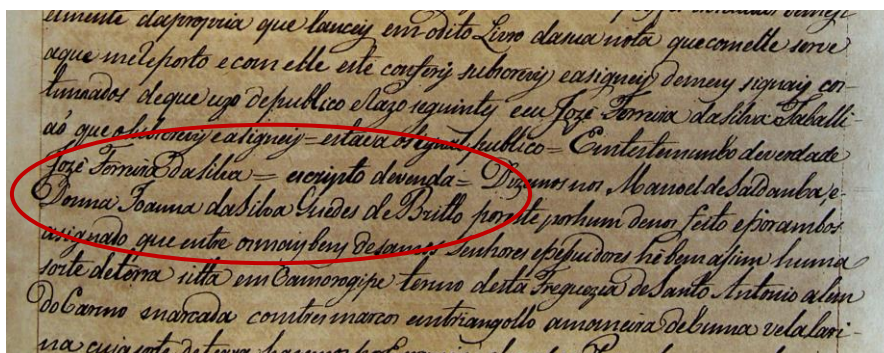 elmente da propria que lancey em o dito Livro da sua nota que com elle serve
aque me reporto e com elle este confery subscrevy easigney de meus signais cos-
tumados de que uzo de publico e Razo seguinty e eu Joze Ferreira da Silva Taballi-
aõ que o subscrevy e asigney = estava o signal publico = Em testemunho de verdade
Joze Ferreira da Silva = escripto de venda = Dizemos nos Manoel de Saldanha, e
Donna Joanna da Silva Guedes de Britto por este por hum de nos feito e por ambos
asignado que entre os mais bens de que somos Senhores e pesuidores he bem asim huma
sorte de terra sitta em Camorogipe termo desta Freguezia de Santo Antonio alem
do Carmo marcada com tres marcos em triangollo a momeira de huma vela lari-
na cuja sorte de terra